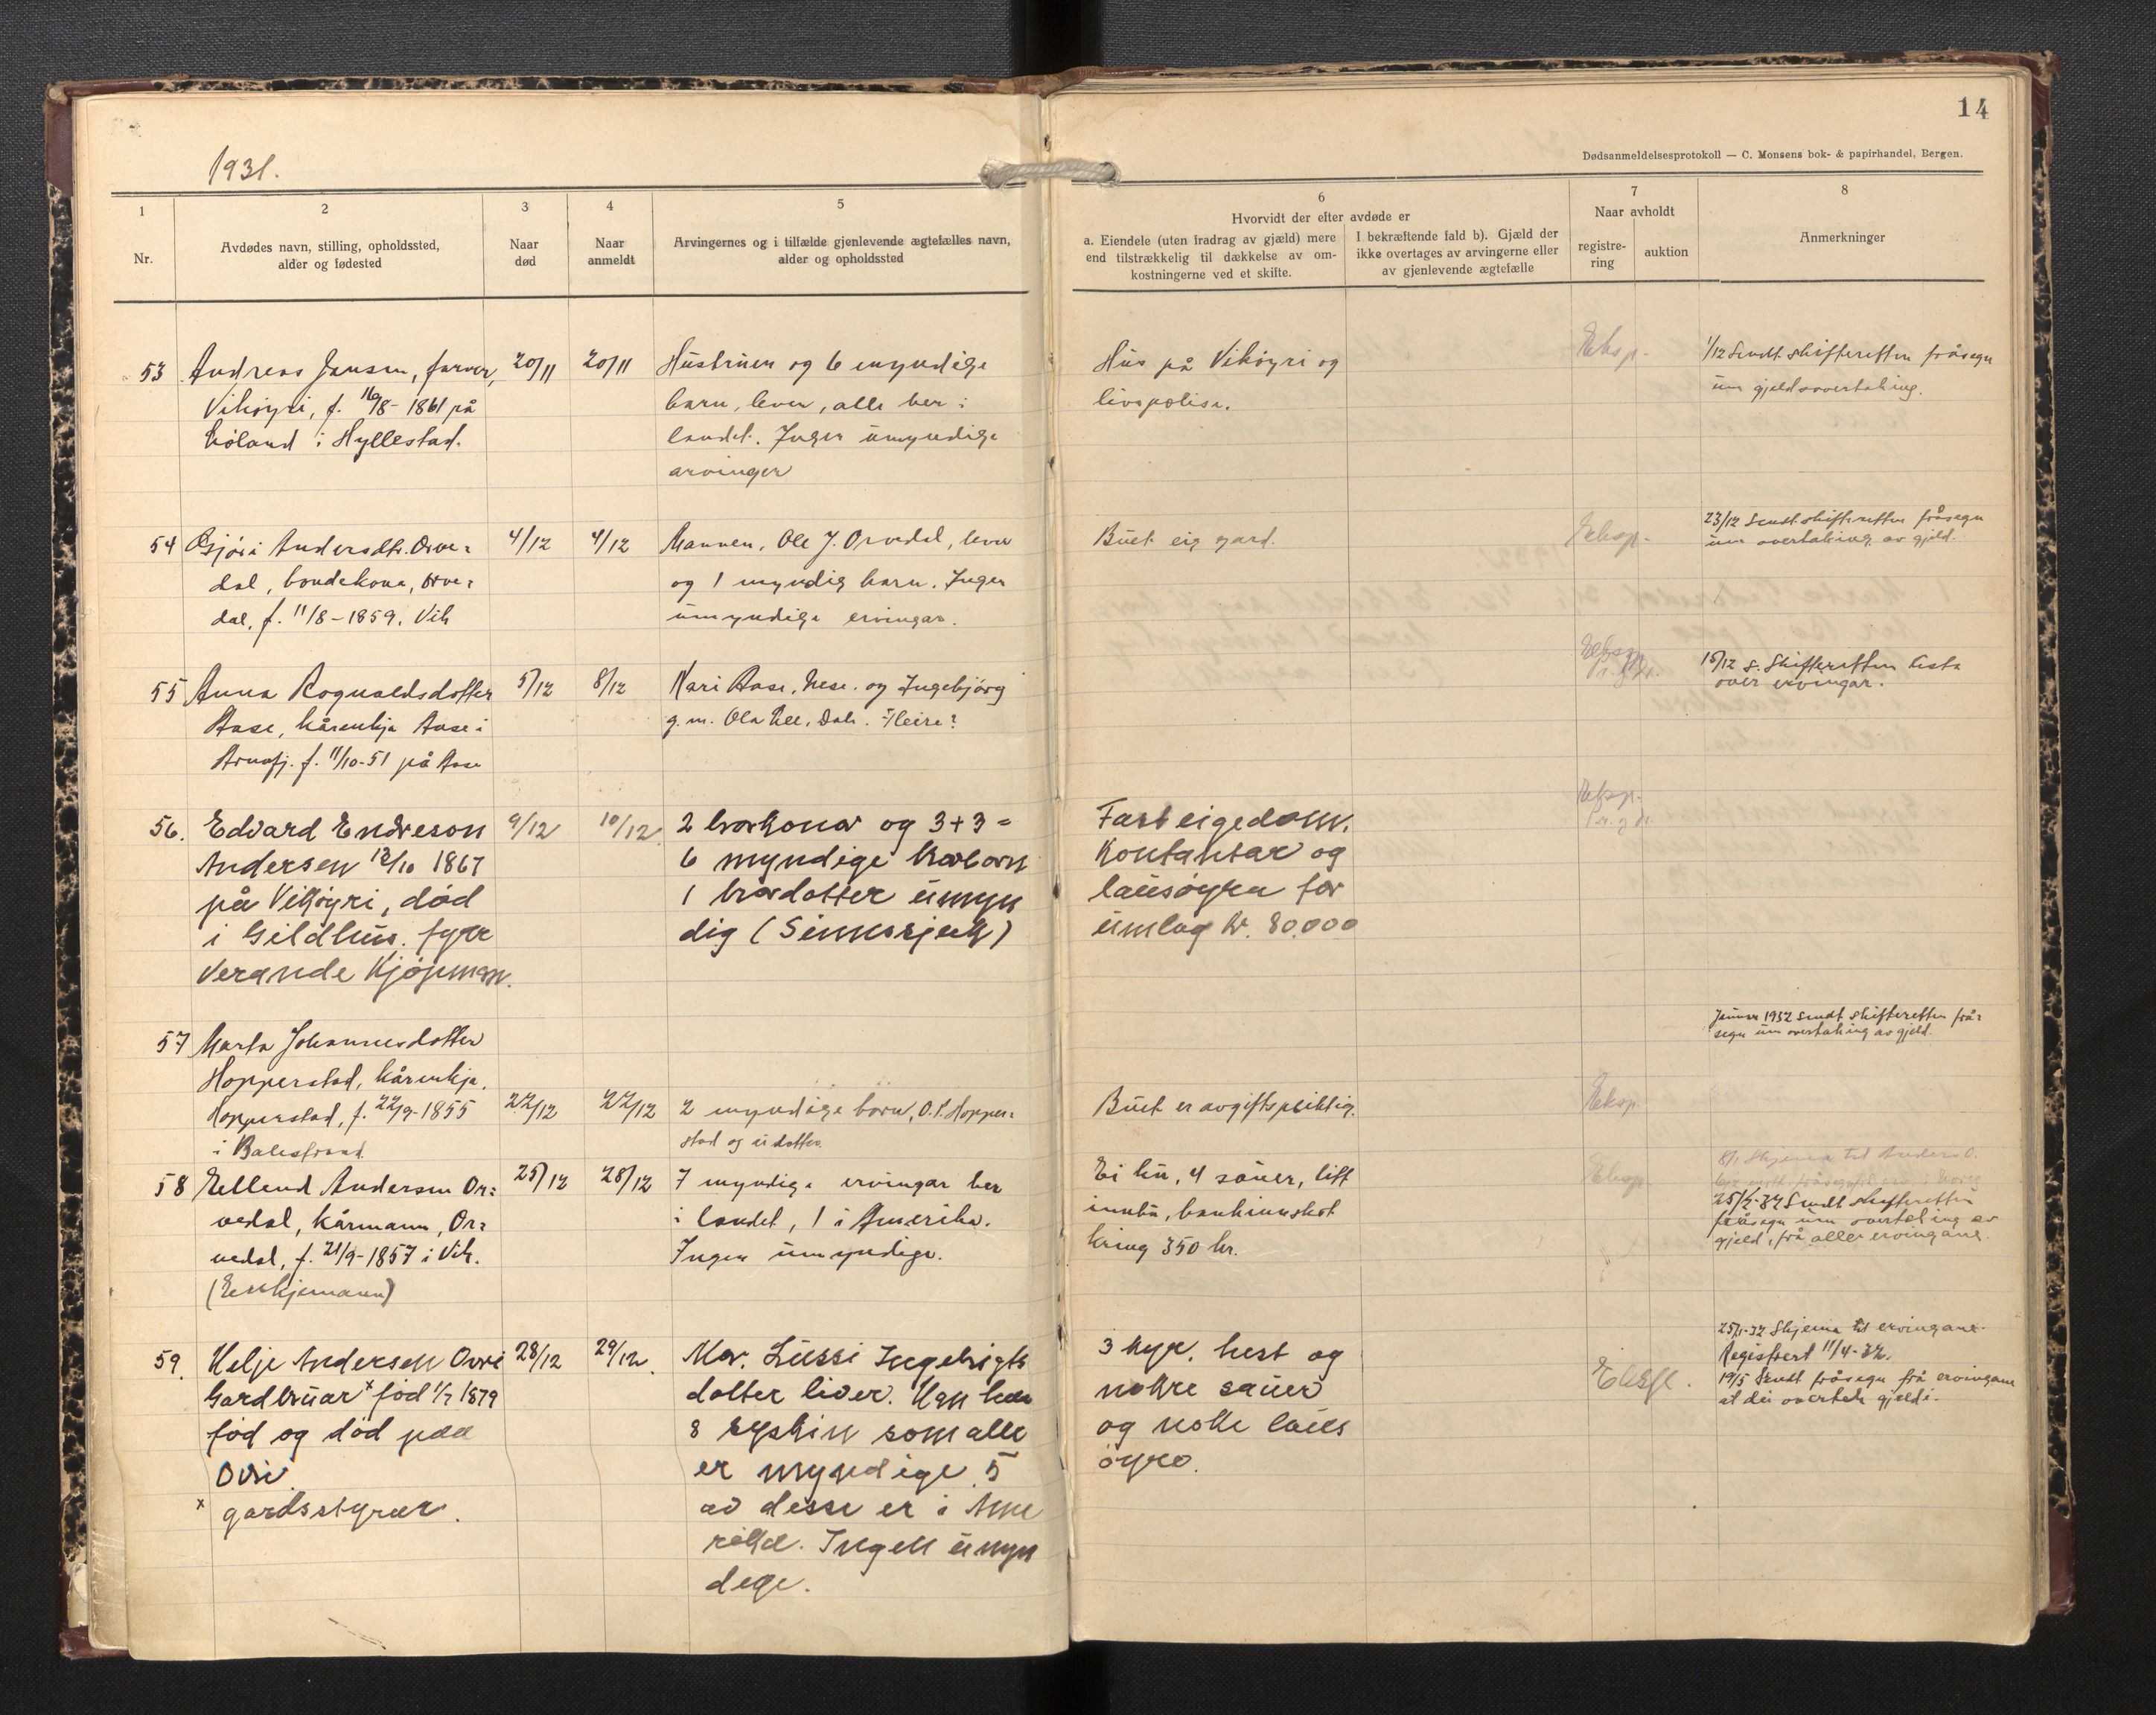 14
Dødsanmeldelsesprotokoll — C. Monsens bok- & papirhandel, Bergen.
1931.
1
Nr.
2
Avdødes navn, stilling, opholdssted,
alder og fødested
3
Naar
død
4
Naar
anmeldt
5
Arvingernes og i tilfælde gjenlevende ægtefælles navn,
alder og opholdssted
6
Hvorvidt der efter avdøde er
a. Eiendele (uten fradrag av gjæld) mere
end tilstrækkelig til dækkelse av om-
kostningerne ved et skifte.
I bekræftende fald b). Gjæld der
ikke overtages av arvingerne eller
av gjenlevende ægtefælle
7
Naar avholdt
registre-
ring
auktion
8
Anmerkninger
53
Andreas Jansen, farver,
Vikøyri, f. 16/8- 1861 på
i Hyllestad.
20/11
20/11
Hustruen og 6 myndige
barn, lever, alle her i
landet. Ingen umyndige
arvinger
Hus på Vikøyri og
livspolise.
Eksp.
1/12 Sendt skifteretten fråsegn
um gjeldsovertaking.
54
Andersdtr. Orve-
dal, bondekona, Orve-
dal, f. 11/8-1859. Vik
4/12
4/12
Mannen, Ole J. Orvedal, lever
og 1 myndig barn. Ingen
umyndige ervingar.
Buet eig gard.
Eksp.
23/12 Sendt skifteretten fråsegn
um overtaking av gjeld.
55
Anna Rognvaldsdotter
Aase, kårenkja Aase i
Arnafj. f. 11/10-51 på Aase
5/12
8/12
Kari Aase, Nese. og Ingebjörg
g.m. Ola Lee, Dale. Fleire?
Eksp.
15/12 s. Skifteretten lista
over ervingar.
56.
Edvard Endreson
Andersen 12/10 1867
på Vikøyri, død
i Gildhus. fyrr
verande Kjøpmann.
9/12
10/12
2 brorkonor og 3+3 =
6 myndige brorborn
1 brordotter umyn
dig (Sinnssjuk)
Fast eigedom.
Kontantar og
lausøyre for
umlag kr. 80.000
Eksp.
57
Marta Johannesdotter
Hopperstad, kårenkja.
Hopperstad, f. 22/9-1855
i Balestrand
22/12
22/12
2 myndige born, O. P. Hopper-
stad og ei dotter.
Buet er avgiftspliktig.
Eksp.
Januar 1932 Sendt skifteretten frå-
segn um overtaking av gjeld.
58
Ellend Andersen Or-
vedal, kårmann, Or-
vedal, f. 21/9-1857 i Vik.
(Enkjemann)
25/12
28/12
7 myndige ervingar her
i landet, 1 i Amerika.
Ingen umyndige.
Ei ku, 4 sauer, litt
innbu, bankinnskot
kring 350 kr.
Eksp.
Skjema til Anders O.
25/2-32 Sendt skifteretten
fråsegn um overtaking av
gjeld, frå alle ervingane.
59.
Helje Andersen Ovri
Gardbruar x fød 1/7 1879
fød og død paa
Ovri
x gardsstyrar.
28/12
29/12.
Mor. Lussi Ingebrigts
dotter liver. Han hev
8 syskin som alle
er myndige. 5
av desse er i Ame
rika. Ingen umyn
dege.
3 kyr. hest og
nokre sauer
og noke laus
øyre.
Eksp.
25/1-32 Skjema til ervingane.
Registrert 11/4-32.
19/5 Sendt fråsegn frå ervingane
at dei overtek gjeldi.